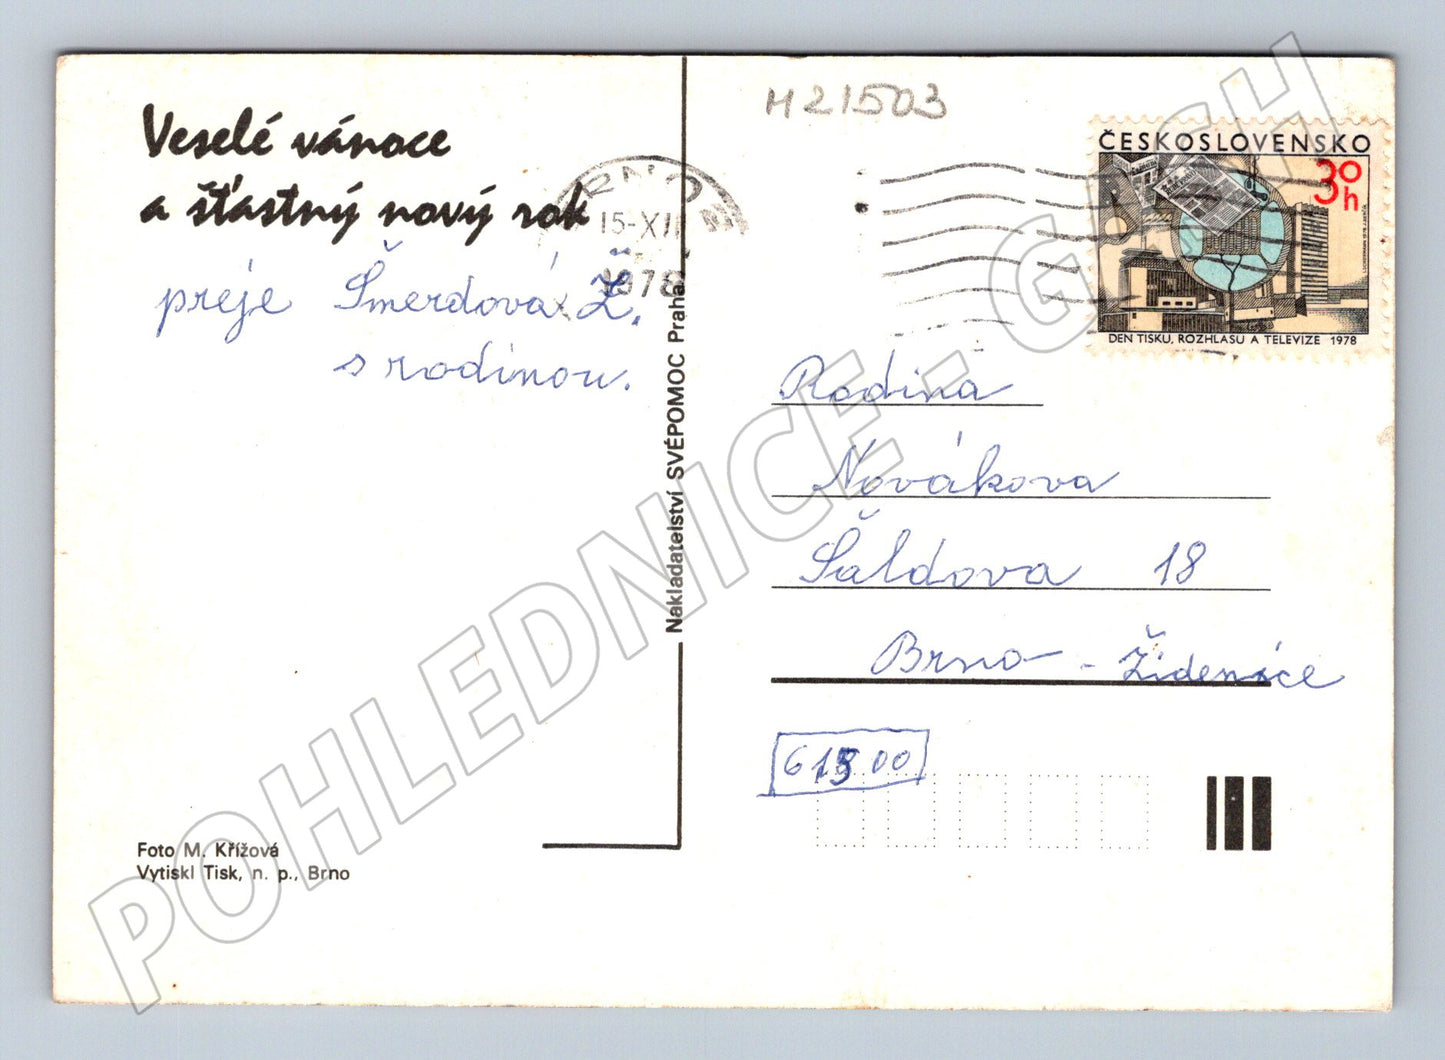 Veselé vánoce
a šťastný nový rok
přeje Šmerdová Ž.
s rodinou.
Foto M. Křížová
Vytiskl Tisk, n. p., Brno
Nakladatelství SVÉPOMOC Praha
BRNO
15-XII
1978
H21503
ČESKOSLOVENSKO
30h
DEN TISKU, ROZHLASU A TELEVIZE 1978
Rodina
Novákova
Šaldova 18
Brno - Židenice
615 00
POHLEDNICE - GASH